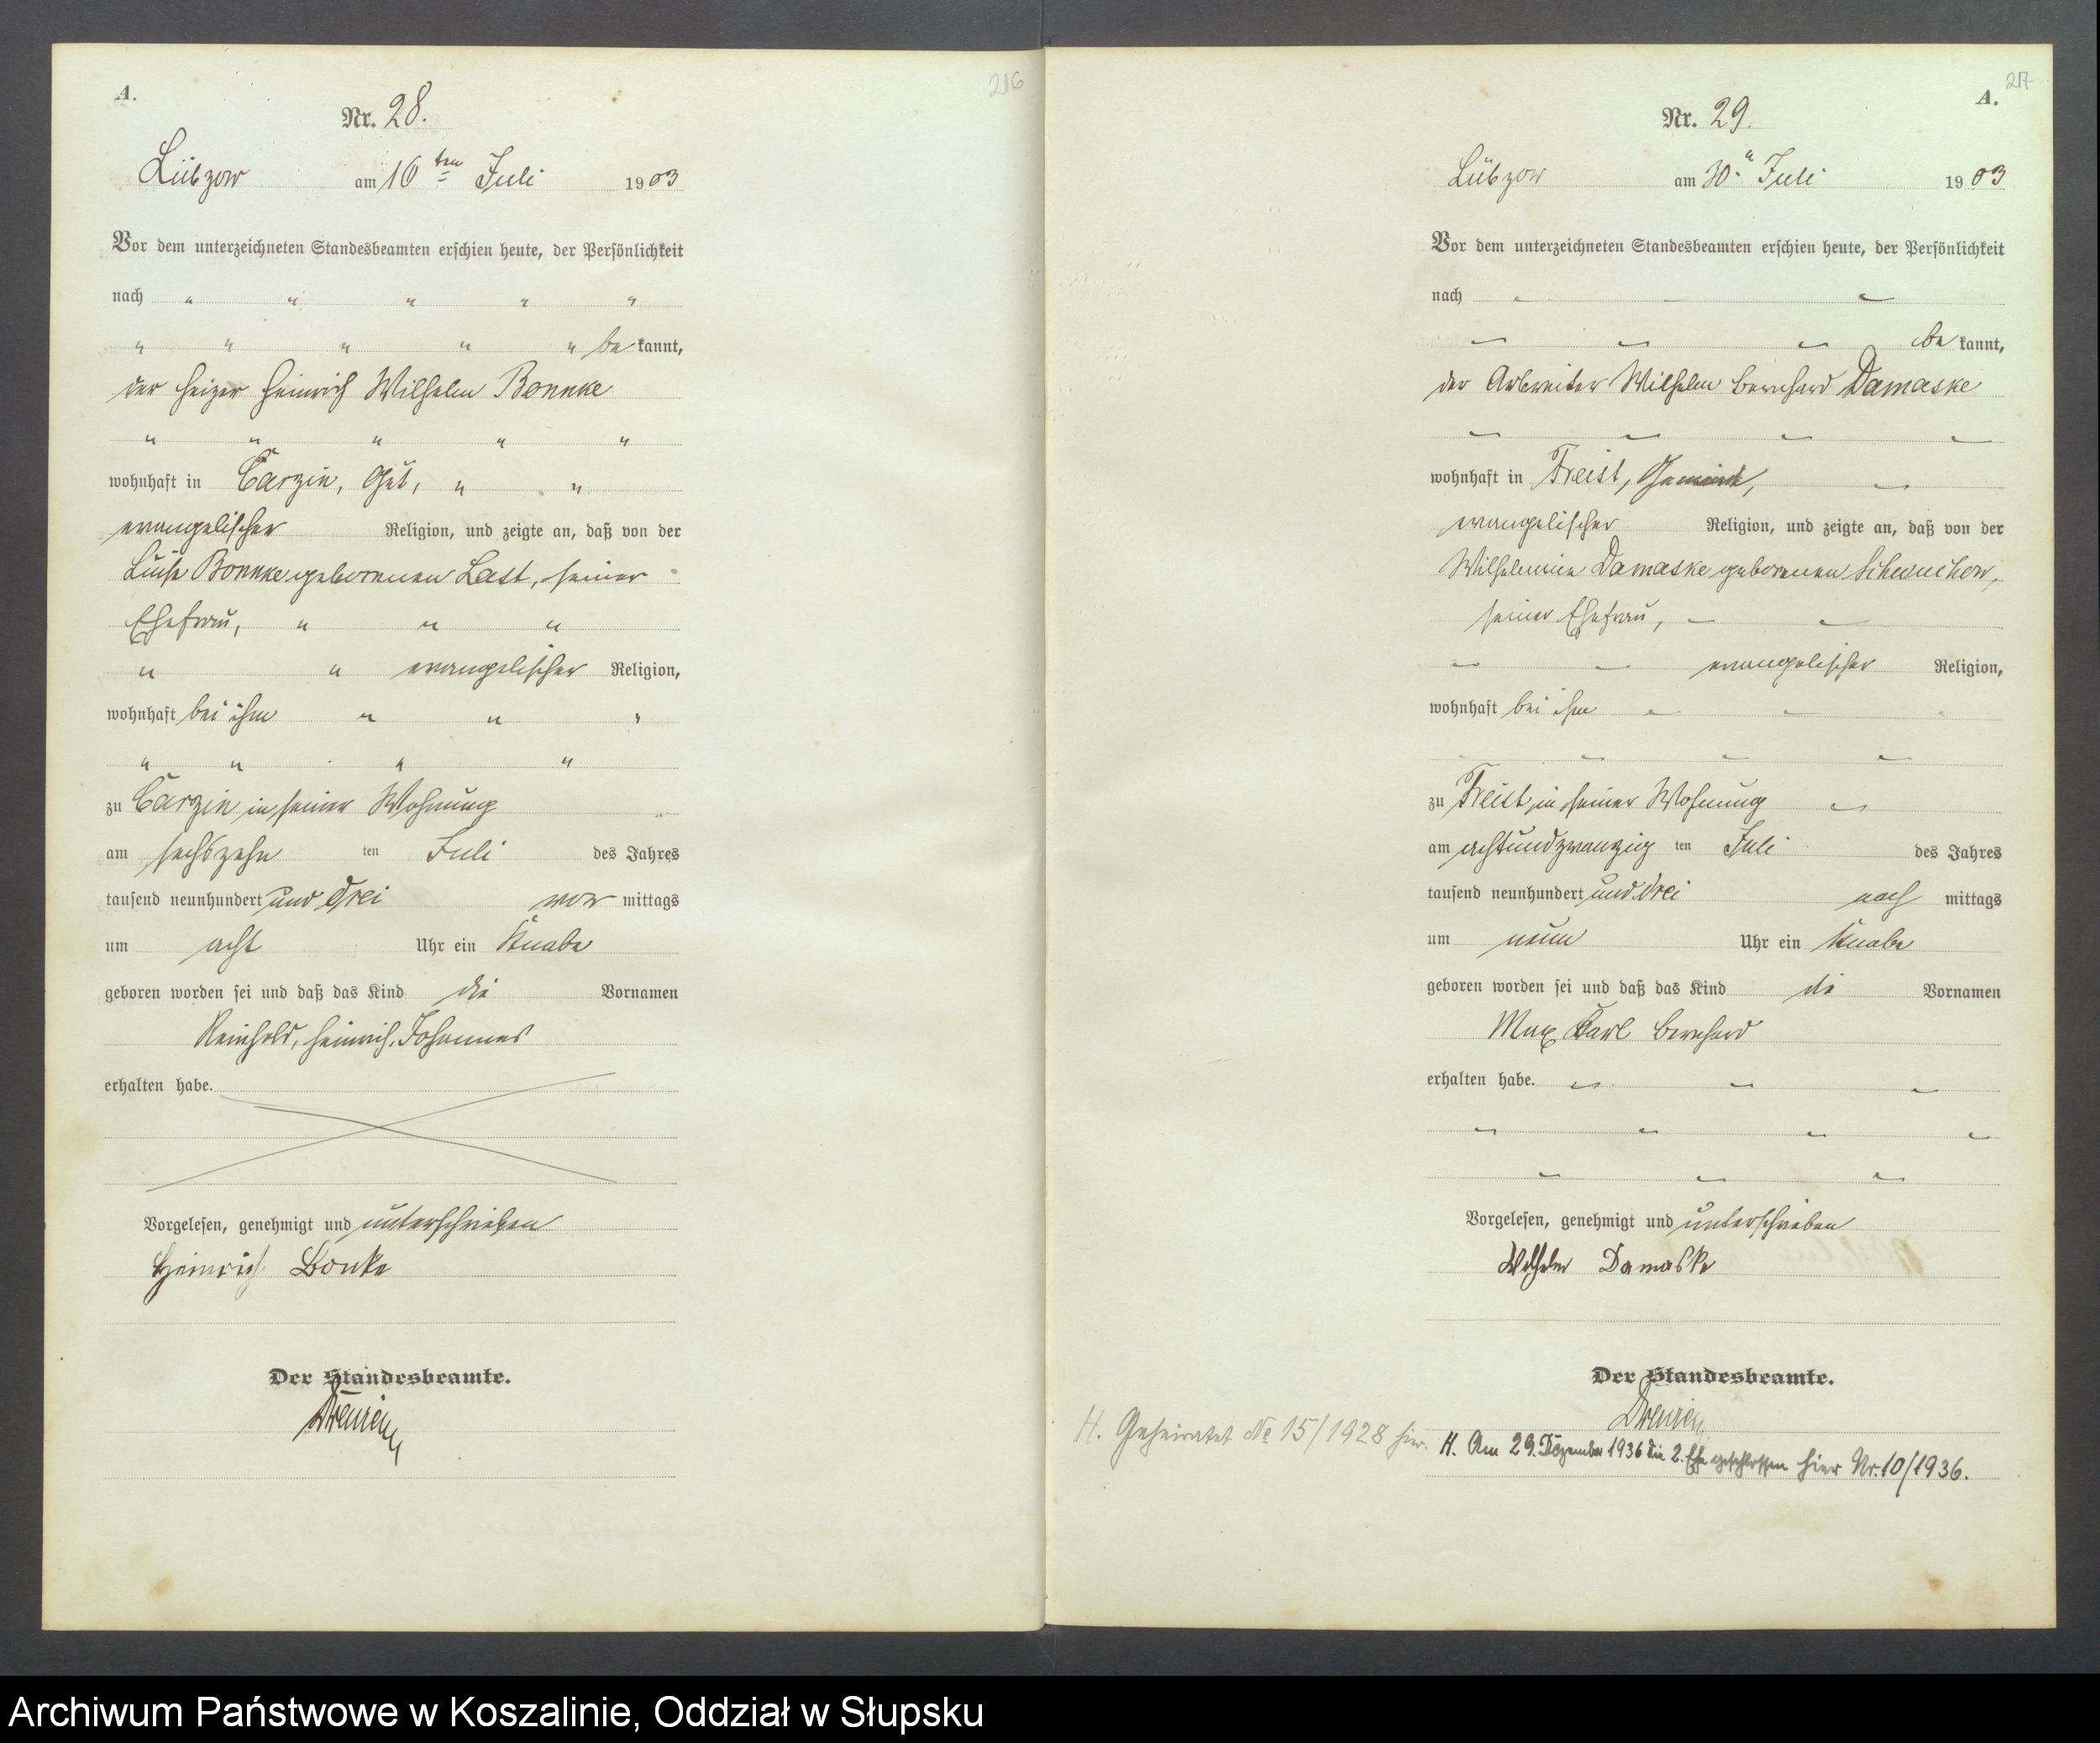 A.
216
Nr. 28.
Lübzow am 16ten Juli 1903
Vor dem unterzeichneten Standesbeamten erschien heute, der Persönlichkeit
nach " " " " "
" " " " " be kannt,
der Heizer Heinrich Wilhelm Bonnke
" " " " "
wohnhaft in Carzin, Gut, " "
evangelischer Religion, und zeigte an, daß von der
Luise Bonnke geborenen Last, seiner
Ehefrau, " " "
" " evangelischer Religion,
wohnhaft bei ihm " " "
" " " "
zu Carzin in seiner Wohnung
am sechszehn ten Juli des Jahres
tausend neunhundert und drei vor mittags
um acht Uhr ein Knabe
geboren worden sei und daß das Kind die Vornamen
Reinhold, Heinrich, Johannes
erhalten habe.
Vorgelesen, genehmigt und unterschrieben
Heinrich Bonke
Der Standesbeamte.
217
A.
Nr. 29.
Lübzow am 30. Juli 1903
Vor dem unterzeichneten Standesbeamten erschien heute, der Persönlichkeit
nach
be kannt,
der Arbeiter Wilhelm Bernhard Damaske
wohnhaft in Freist, Gemeinde,
evangelischer Religion, und zeigte an, daß von der
Wilhelmine Damaske geborenen
seiner Ehefrau,
evangelischer Religion,
wohnhaft bei ihm
zu Freist in seiner Wohnung
am achtundzwanzig ten Juli des Jahres
tausend neunhundert und drei nach mittags
um neun Uhr ein Knabe
geboren worden sei und daß das Kind die Vornamen
Max Karl Bernhard
erhalten habe.
Vorgelesen, genehmigt und unterschrieben
Wilhelm Damaske
Der Standesbeamte.
H. Geheiratet No 15/1928 hier.
H. Am 29. Dezember 1936 die 2. Ehe geschlossen hier Nr. 10/1936.
Archiwum Państwowe w Koszalinie, Oddział w Słupsku